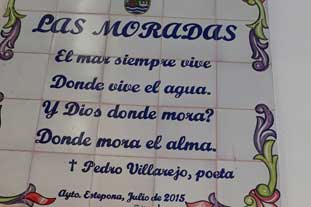 LAS MORADAS
El mar siempre vive
Donde vive el agua.
Y Dios donde mora?
Donde mora el alma.
† Pedro Villarejo, poeta
Ayto. Estepona, Julio de 2015